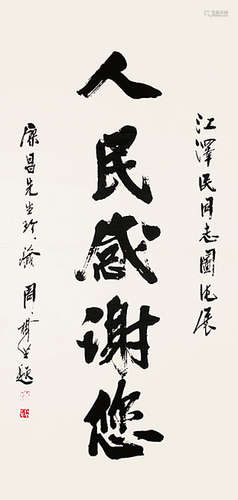 江泽民同志图片展
人民感谢您
康昌先生珍藏 周·题